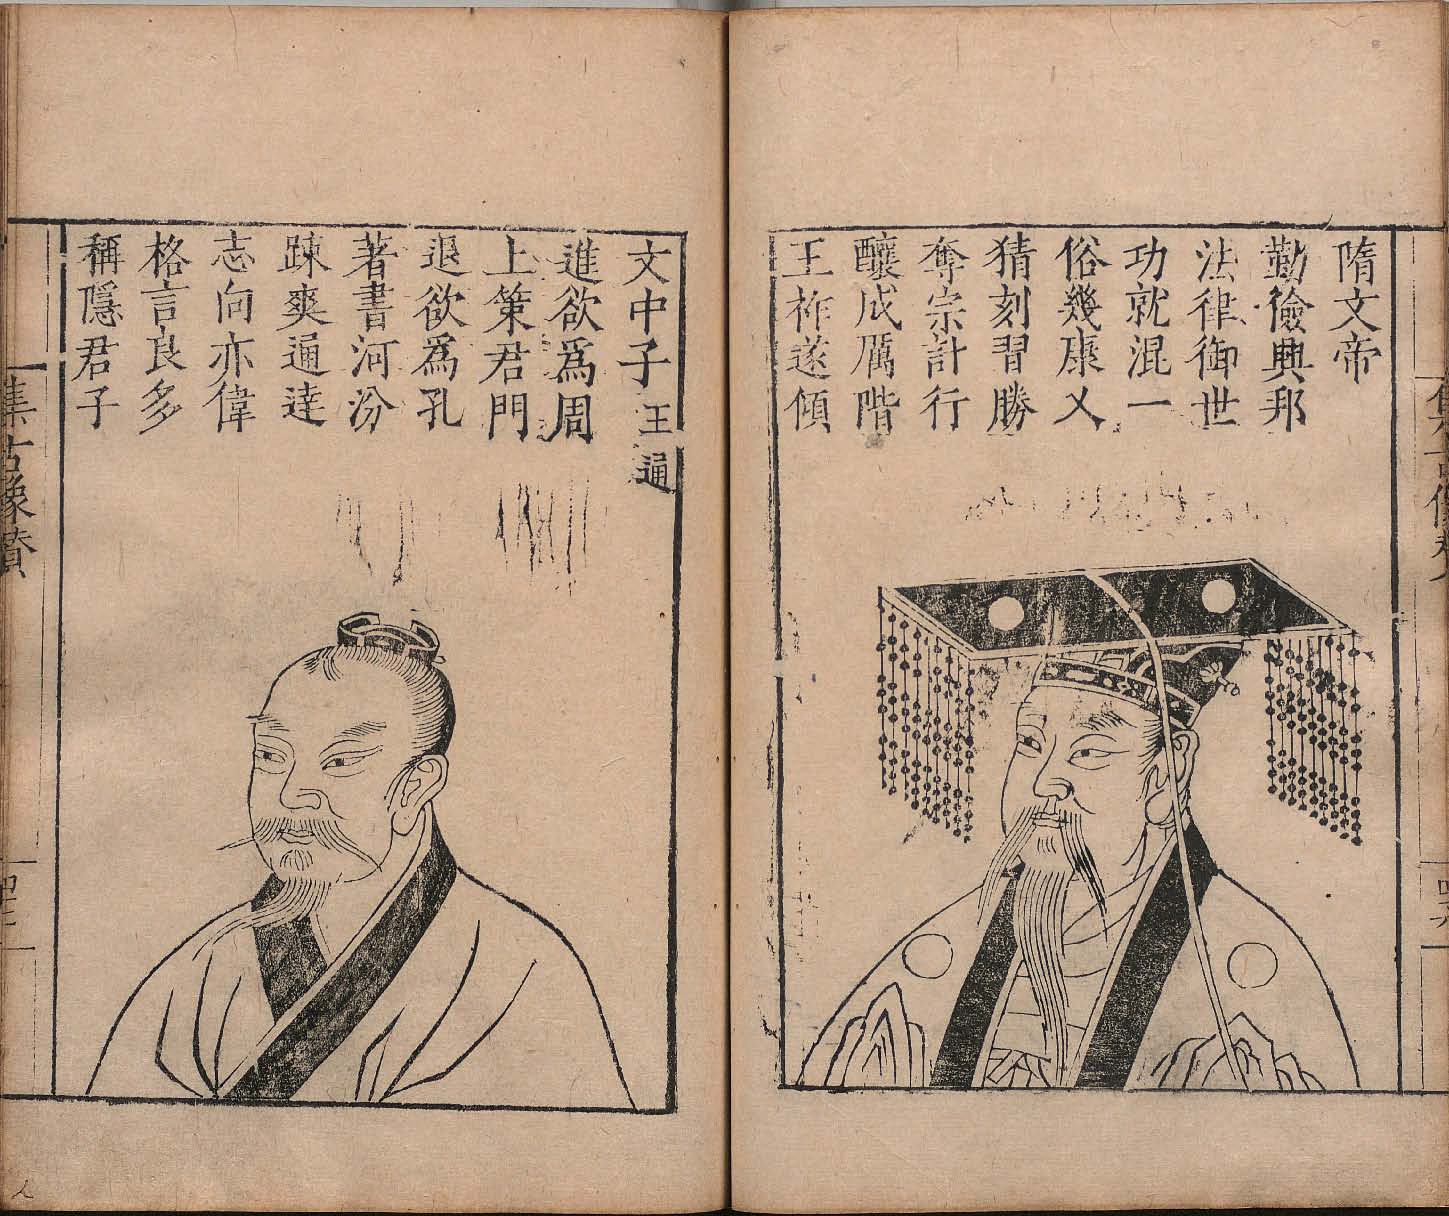 隋文帝
勤儉興邦
法律御世
功就混一
俗幾康乂
猜刻習勝
奪宗計行
釀成厲階
王祚遂傾
文中子王通
進欲爲周
上策君門
退欲爲孔
著書河汾
踈爽通達
志向亦偉
格言良多
稱隱君子
集古像贊